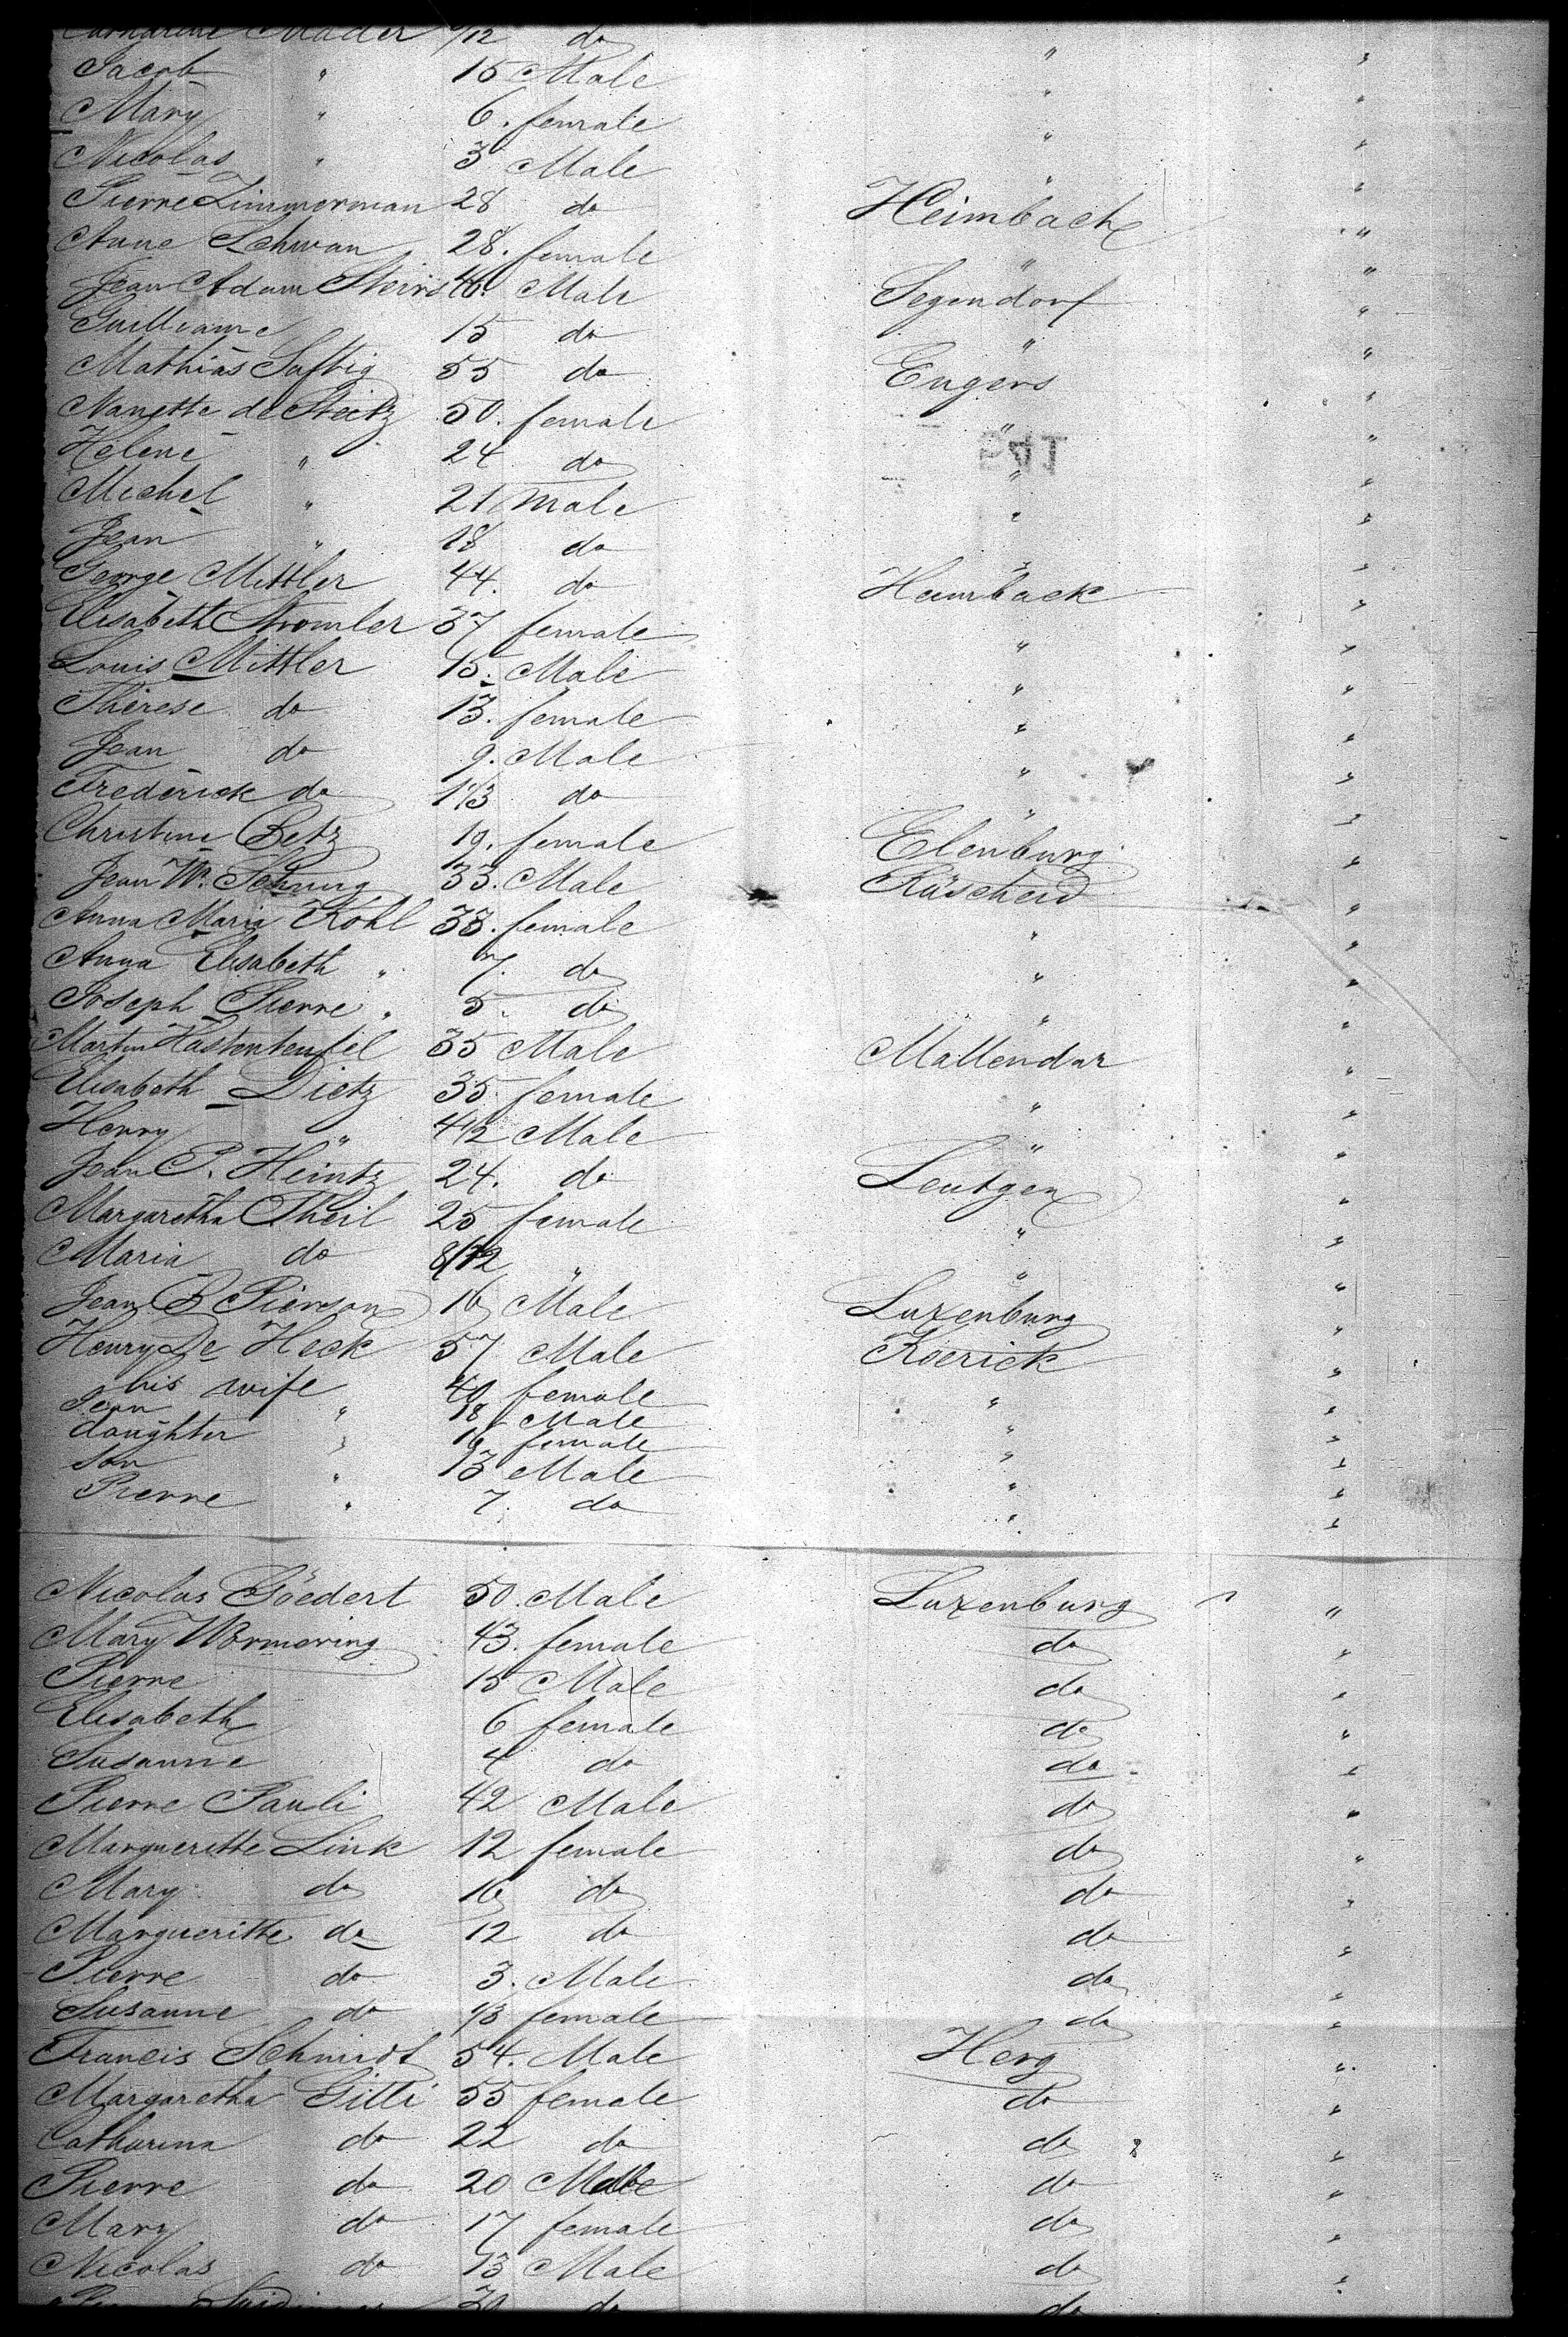 Catharine Mader /12 do " "
Jacob " 15 Male " "
Mary " 6. female " "
Nicolas " 3 Male " "
Pierre Zimmerman 28 do Heimbach "
Anne Schwan 28. female " "
Jean Adam 46. Male Segendorf "
Guilliaume 15 do " "
Mathias Saftig 55 do Engers "
Nanette de Steitz 50. female " "
Helene " 24 do " "
Michel " 21 Male " "
Jean " 18 do " "
George Mittler 44. do Heimback "
Elisabeth Stromler 37 female " "
Louis Mittler 15. Male " "
Therese do 13. female " "
Jean do 9. Male " "
Frederick do 1 1/3 do " "
Christine Betz 19. female Elenburg "
Jean Wm. Schung 33. Male Räscheid "
Anna Maria Kohl 38. female " "
Anna Elisabeth " 7. do " "
Joseph Pierre " 5. do " "
Martin Hastenteufel 35 Male Mallendar "
Elisabeth Dietz 35. female " "
Henry " 4 1/2 Male " "
Jean P. Heintz 24. do Leutgen "
Margaretha Theil 25 female " "
Maria do 8/12 " " "
Jean B Pierson 16 Male Luxenburg "
Henry De Heck 57 Male Koerick "
his wife 40 female " "
Jean " 18 Male " "
daughter " 16 female " "
son " 13 Male " "
Pierre " 7. do " "
Nicolas Göedert 50. Male Luxenburg "
Mary Wormering 43. female do "
Pierre 15 Male do "
Elisabeth 6 female do "
Susanne 4 do do "
Pierre Pauli 42 Male do "
Marguerithe Link 12 female do "
Mary do 16 do do "
Margueritte do 12 do do "
Pierre do 3. Male do "
Susanne do 1/3 female do "
Francis Schmidt 54. Male Herg "
Margaretha Gitti 55 female do "
Catharina do 22 do do "
Pierre do 20 Male do "
Mary do 17 female do "
Nicolas do 13 Male do "
30 do do